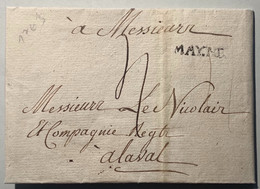 à Messieurs
MAYNE
Messieurs Le Nicolais
Et Compagnie Negts
à laval